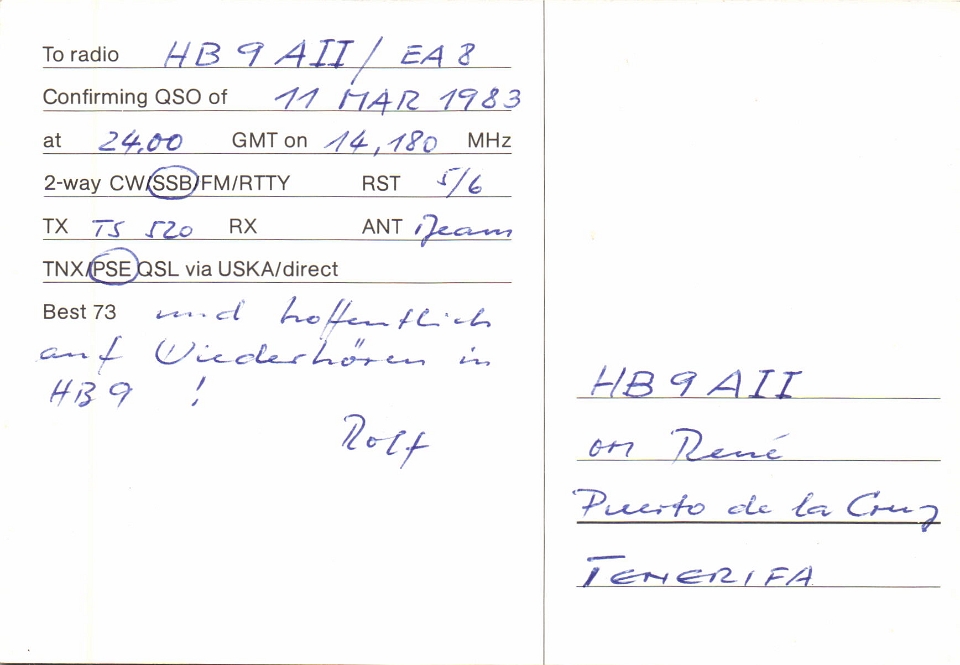 To radio HB 9 AII / EA 8
Confirming QSO of 11 MAR 1983
at 24.00 GMT on 14,180 MHz
2-way CW/SSB/FM/RTTY RST 5/6
TX TS 520 RX ANT Beam
TNX/PSE QSL via USKA/direct
Best 73 und hoffentlich
auf Wiederhören in
HB 9 !
Rolf
HB 9 AII
om René
Puerto de la Cruz
TENERIFA